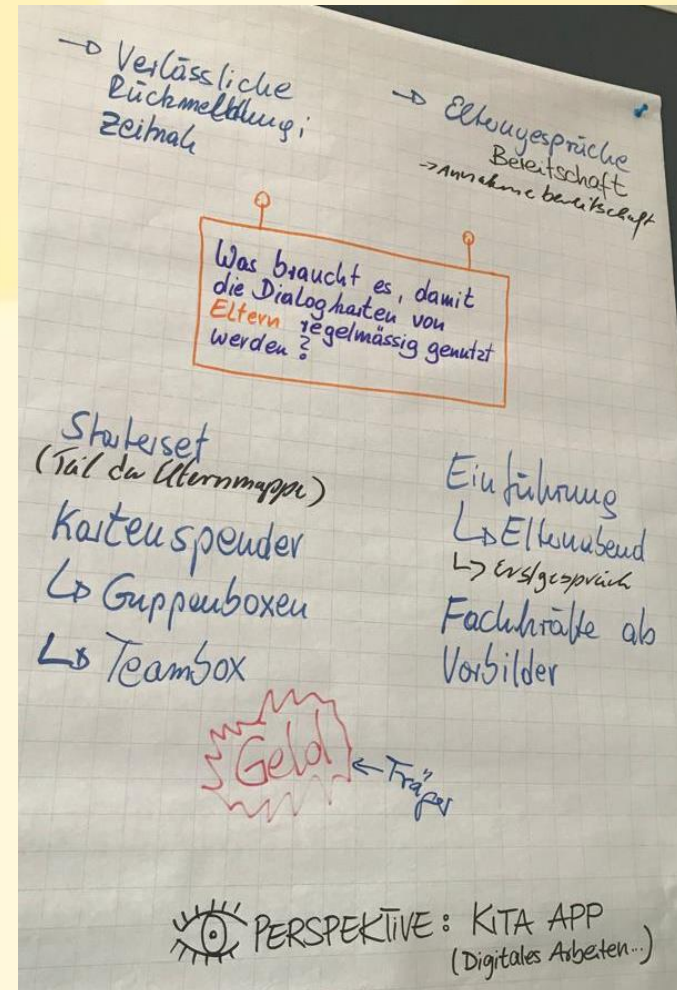 → Verlässliche
Rückmeldung;
Zeitnah
→ Elterngespräche
Bereitschaft
→ Annahmebereitschaft
Was braucht es, damit
die Dialogkarten von
Eltern regelmässig genutzt
werden?
Starterset
(Teil der Elternmappe)
Kartenspender
↳ Guppenboxen
↳ Teambox
Einführung
↳ Elternabend
↳ Erstgespräch
Fachkräfte als
Vorbilder
Geld
← Träger
PERSPEKTIVE: KITA APP
(Digitales Arbeiten...)